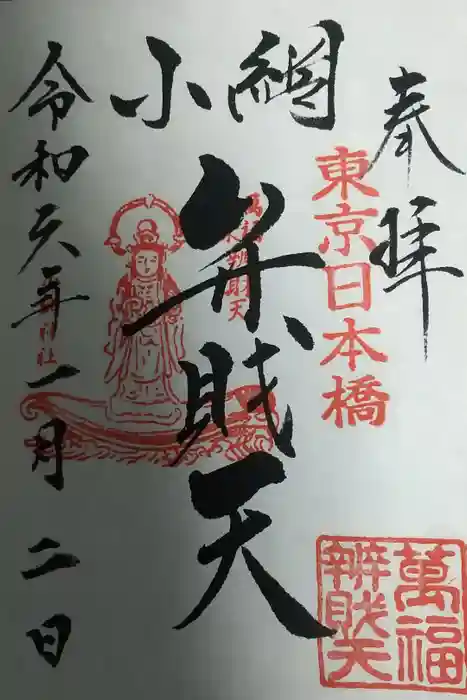 奉拝
東京日本橋
小網
弁財天
令和六年一月二日
萬福
辨財天